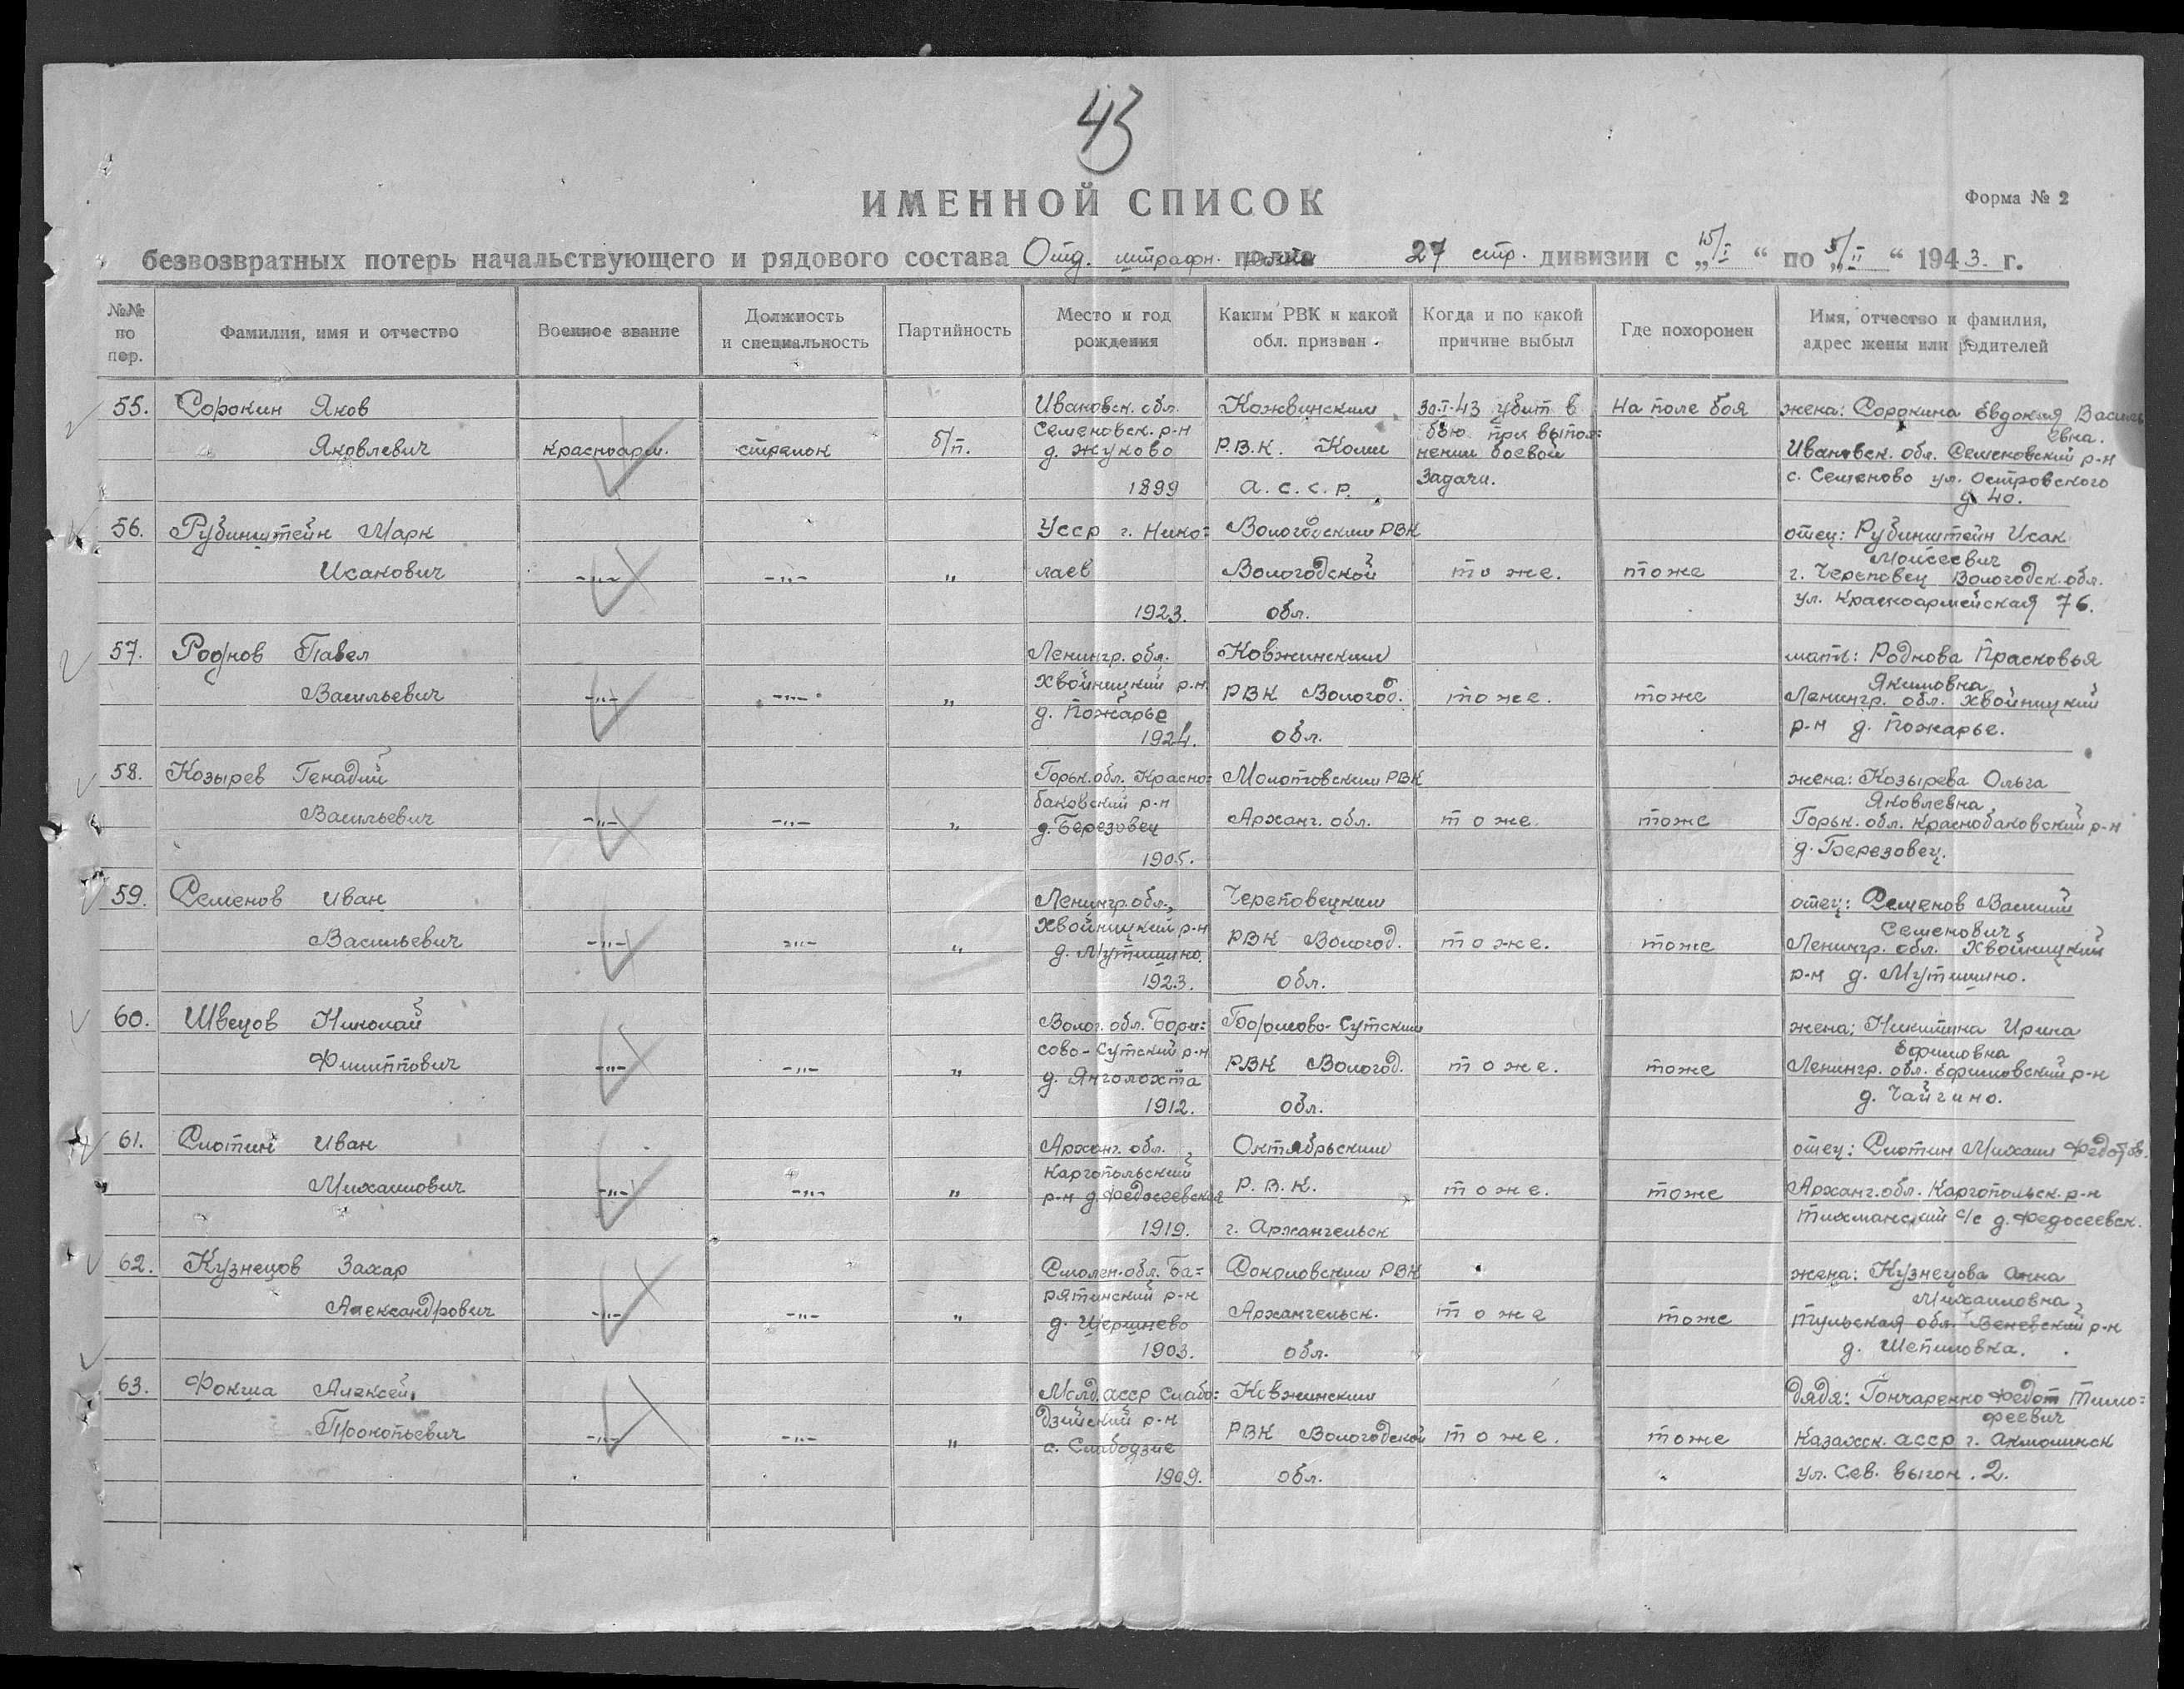 43
ИМЕННОЙ СПИСОК
Форма № 2
безвозвратных потерь начальствующего и рядового состава Отд. штрафн. роты полка 27 стр. дивизии с „15/I“ по „5/II“ 1943. г.
№№ по пор.
Фамилия, имя и отчество
Военное звание
Должность и специальность
Партийность
Место и год рождения
Каким РВК и какой обл. призван
Когда и по какой причине выбыл
Где похоронен
Имя, отчество и фамилия, адрес жены или родителей
55. Сорокин Яков Ивановск. обл. Кожвинским 30-I-43 убит в На поле боя жена: Сорокина Евдокия Василь
Яковлевич красноарм. стрелок б/п. Семеновск. р-н Р.В.К. Коми бою при выпол= евна.
д. Жуково нении боевой Ивановск. обл. Семеновский р-н
1899 а.с.с.р. задачи. с. Семеново ул. Островского
д 40.
56. Рубинштейн Марк Усср г. Нико= Вологодским РВК отец: Рубинштейн Исак
Исакович -„- -„- „ лаев Вологодской тоже. тоже Моисеевич
г. Череповец Вологодск. обл.
1923. обл. ул. Красноармейская 76.
57. Роднов Павел Ленингр. обл. Ковжинским мать: Роднова Прасковья
Васильевич -„- -„- „ Хвойницкий р-н РВК Вологод. тоже. тоже Якимовна
д. Пожарье Ленингр. обл. Хвойницкий
1924. обл. р-н д. Пожарье.
58. Козырев Генадий Горьк. обл. Красно= Молотовским РВК жена: Козырева Ольга
Васильевич -„- -„- „ баковский р-н Арханг. обл. тоже. тоже Яковлевна
д. Березовец Горьк. обл. Краснобаковский р-н
1905. д. Березовец.
59. Семенов Иван Ленингр. обл., Череповецким отец: Семенов Василий
Васильевич -„- -„- „ Хвойницкий р-н РВК Вологод. тоже. тоже Семенович
д. Мутишино. Ленингр. обл. Хвойницкий
1923. обл. р-н д. Мутишино.
60. Швецов Николай Волог. обл. Бори= Борисово-Сутским жена: Никитина Ирина
Филиппович -„- -„- „ сово-Сутский р-н РВК Вологод. тоже. тоже Ефимовна
д. Янголохта Ленингр. обл. Ефимовский р-н
1912. обл. д. Чайгино.
61. Слотин Иван Арханг. обл. Октябрьским отец: Слотин Михаил Федотов.
Михайлович -„- -„- „ Каргопольский Р.В.К. тоже. тоже Арханг. обл. Каргопольск. р-н
р-н д. Федосеевская
1919. г. Архангельск Тихманский с/с д. Федосеевск.
62. Кузнецов Захар Смолен. обл. Ба= Соколовским РВК жена: Кузнецова Анна
Александрович -„- -„- „ рятинский р-н Архангельск. тоже тоже Михайловна
д. Щершнево Тульская обл. Веневский р-н
1903. обл. д. Шепиловка.
63. Фокша Алексей Молд. асср Слабо= Ковжинским дядя: Гончаренко Федот Тимо=
Прокопьевич -„- -„- „ дзийский р-н РВК Вологодской тоже. тоже феевич
с. Слабодзие Казахск. асср г. Акмолинск
1909. обл. ул. Сев. выгон. 2.